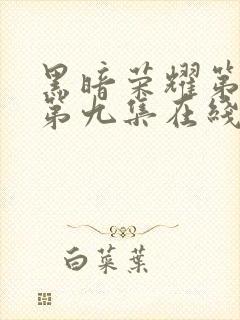 黑暗荣耀第
第九集在线
白菜葉